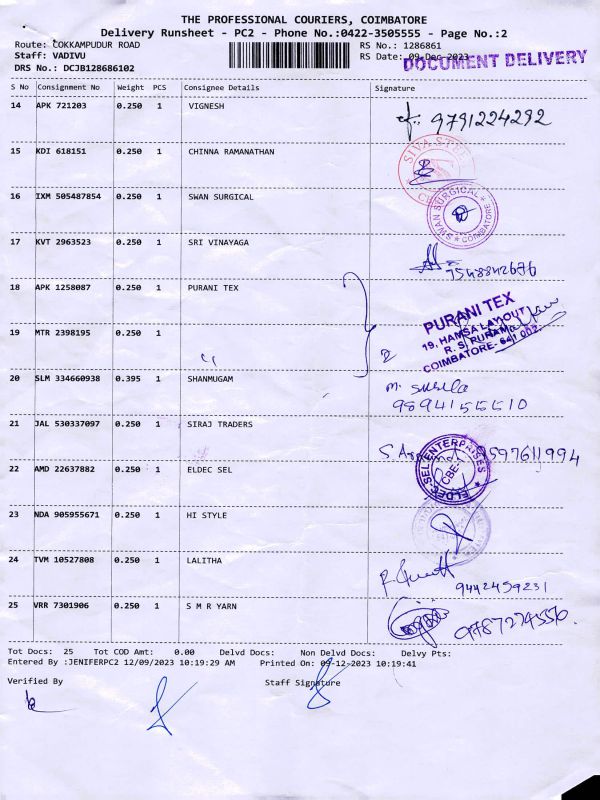 THE PROFESSIONAL COURIERS, COIMBATORE
Delivery Runsheet - PC2 - Phone No.:0422-3505555 - Page No.:2
Route: COKKAMPUDUR ROAD RS No.: 1286861
Staff: VADIVU RS Date: 09-Dec-2023
DOCUMENT DELIVERY
DRS No.: DCJB128686102
S No Consignment No Weight PCS Consignee Details Signature
14 APK 721203 0.250 1 VIGNESH
9791224292
15 KDI 618151 0.250 1 CHINNA RAMANATHAN
16 IXM 505487854 0.250 1 SWAN SURGICAL
SWAN SURGICAL COIMBATORE
17 KVT 2963523 0.250 1 SRI VINAYAGA
7548842676
18 APK 1258087 0.250 1 PURANI TEX
PURANI TEX
19, HAMSA LAYOUT
R. S. PURAM
COIMBATORE- 641 002.
19 MTR 2398195 0.250 1
20 SLM 334660938 0.395 1 SHANMUGAM
M. Susila
9894155510
21 JAL 530337097 0.250 1 SIRAJ TRADERS
9597611994
22 AMD 22637882 0.250 1 ELDEC SEL
ELDEC-SEL ENTERPRISES
CBE-2
23 NDA 905955671 0.250 1 HI STYLE
24 TVM 10527808 0.250 1 LALITHA
9442459231
25 VRR 7301906 0.250 1 S M R YARN
9787274556.
Tot Docs: 25 Tot COD Amt: 0.00 Delvd Docs: Non Delvd Docs: Delvy Pts:
Entered By :JENIFERPC2 12/09/2023 10:19:29 AM Printed On: 09-12-2023 10:19:41
Verified By Staff Signature